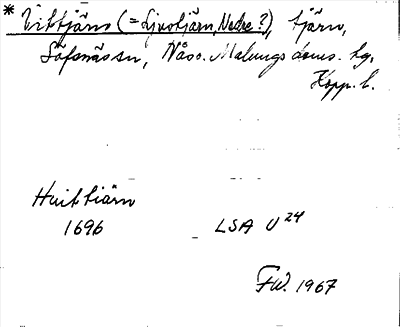 * Vittjärn (= Ljustjärn, Nedre?), tjärn,
Säfsnäs sn, Nås o. Malungs doms. hg,
Kopp. l.
Huittiärn
1696 LSA U 24
FW. 1967